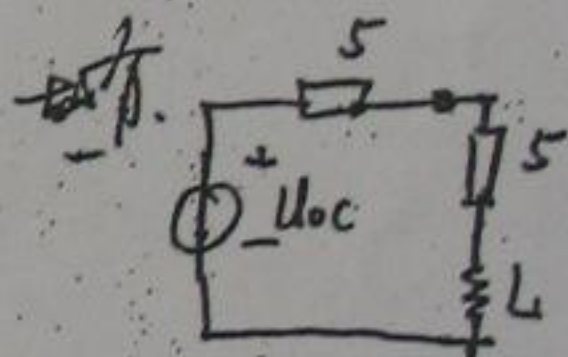 5
+
Uoc
-
5
L